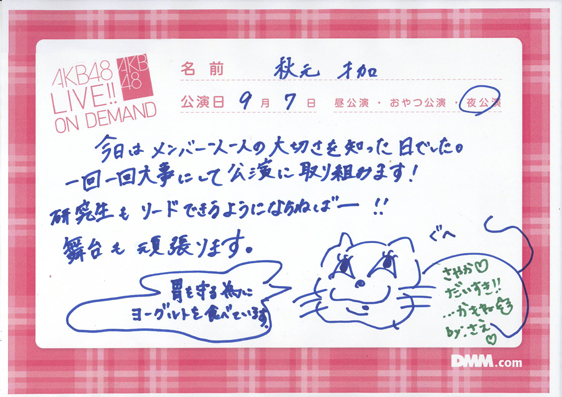 AKB48
LIVE!!
ON DEMAND
AKB
48
名前 秋元 才加
公演日 9月 7日 昼公演・おやつ公演・夜公演
今日はメンバー一人一人の大切さを知った日でした。
一回一回大事にして公演に取り組みます!
研究生もリードできるようにならねばー!!
舞台も頑張ります。
ぐへ
胃を守る為に
ヨーグルトを食べています。
さやか♡
だいすき!!
by.さえ♡
DMM.com